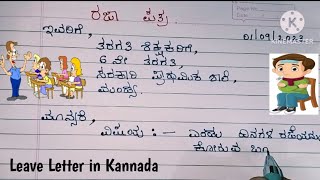 ರಜಾ ಪತ್ರ
ಇವರಿಗೆ,
01/09/2023
ತರಗತಿ ಶಿಕ್ಷಕರಿಗೆ,
6 ನೇ ತರಗತಿ,
ಸರಕಾರಿ ಪ್ರಾಥಮಿಕ ಶಾಲೆ,
ಮಂಡ್ಯ.
ಮಾನ್ಯರೆ,
ವಿಷಯ :- ಎರಡು ದಿನಗಳ ರಜೆಯನ್ನು
ಕೋರುವ ಬ
Leave Letter in Kannada
KINEMASTER